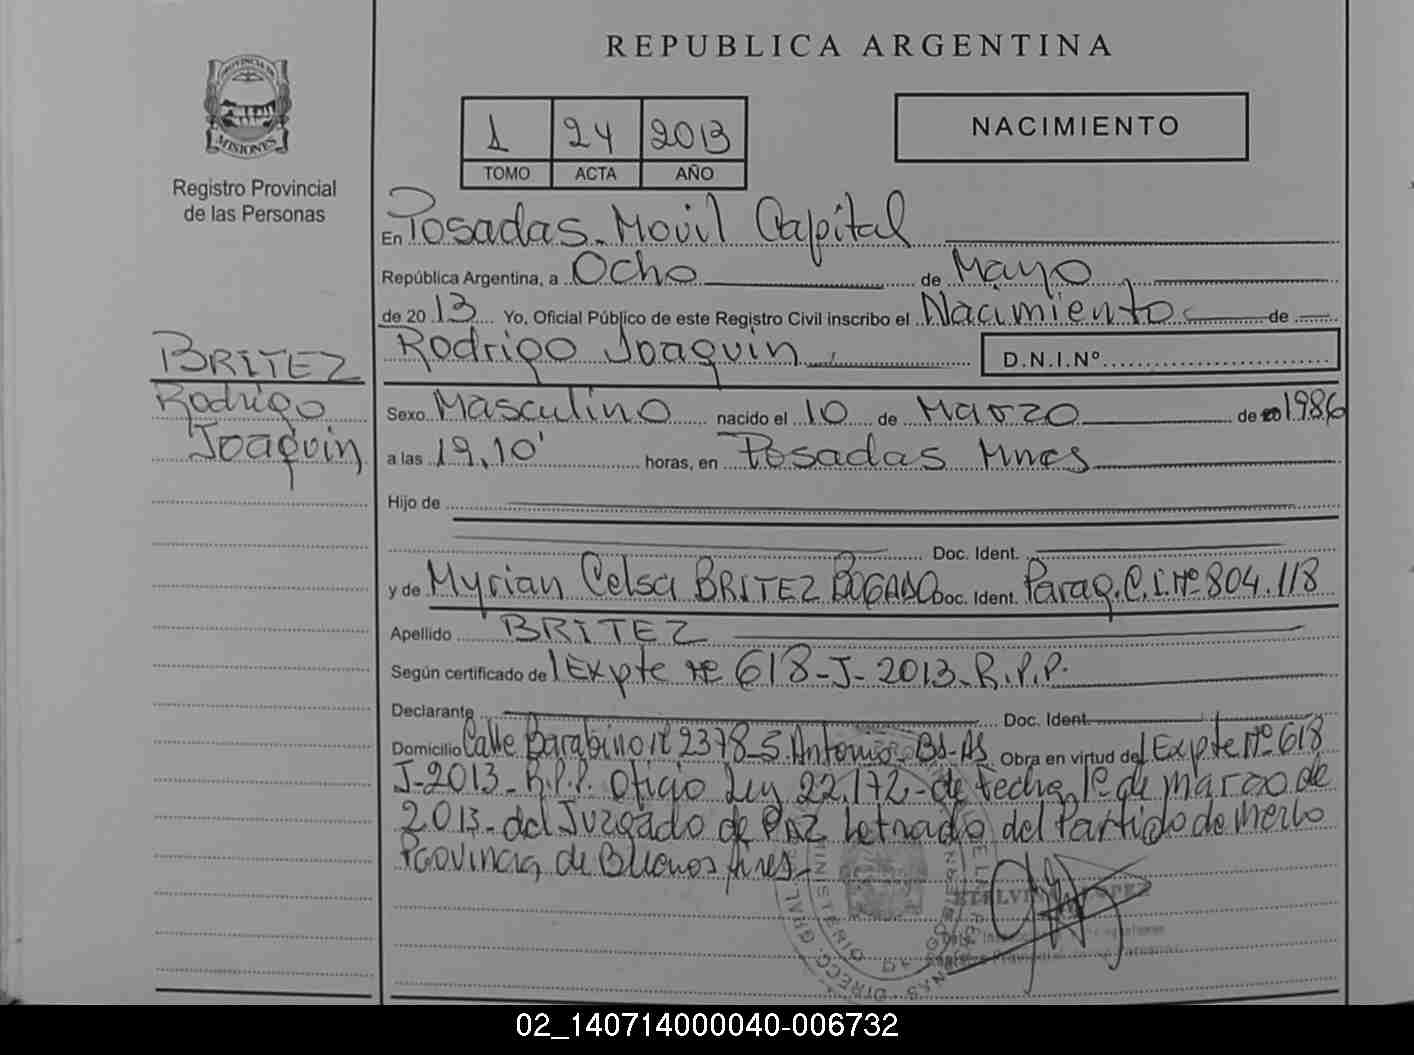 REPUBLICA ARGENTINA
PROVINCIA DE
MISIONES
Registro Provincial
de las Personas
1 24 2013
TOMO ACTA AÑO
NACIMIENTO
En Posadas - Movil Capital
República Argentina, a Ocho de Mayo
de 2013 Yo, Oficial Público de este Registro Civil inscribo el Nacimiento de
Rodrigo Joaquin, D.N.I.Nº
BRITEZ
Rodrigo
Joaquin,
Sexo Masculino nacido el 10 de Marzo de 1986
a las 19,10' horas, en Posadas Mnes
Hijo de
Doc. Ident.
y de Myrian Celsa BRITEZ BOGADO Doc. Ident. Parag. C.I. Nº 804.118
Apellido BRITEZ
Según certificado del Expte nº 618-J-2013-R.P.P.
Declarante Doc. Ident.
Domicilio Calle Barabino nº 2378-S. Antonio-BS-AS Obra en virtud del Expte Nº 618
J-2013-R.P.P. oficio Ley 22.172-de fecha 1º de marzo de
2013-del Juzgado de PAZ Letrado del Partido de Merlo
Provincia de Buenos Aires-
MINISTERIO DE GOB
DIRECC. GRAL.
02_140714000040-006732